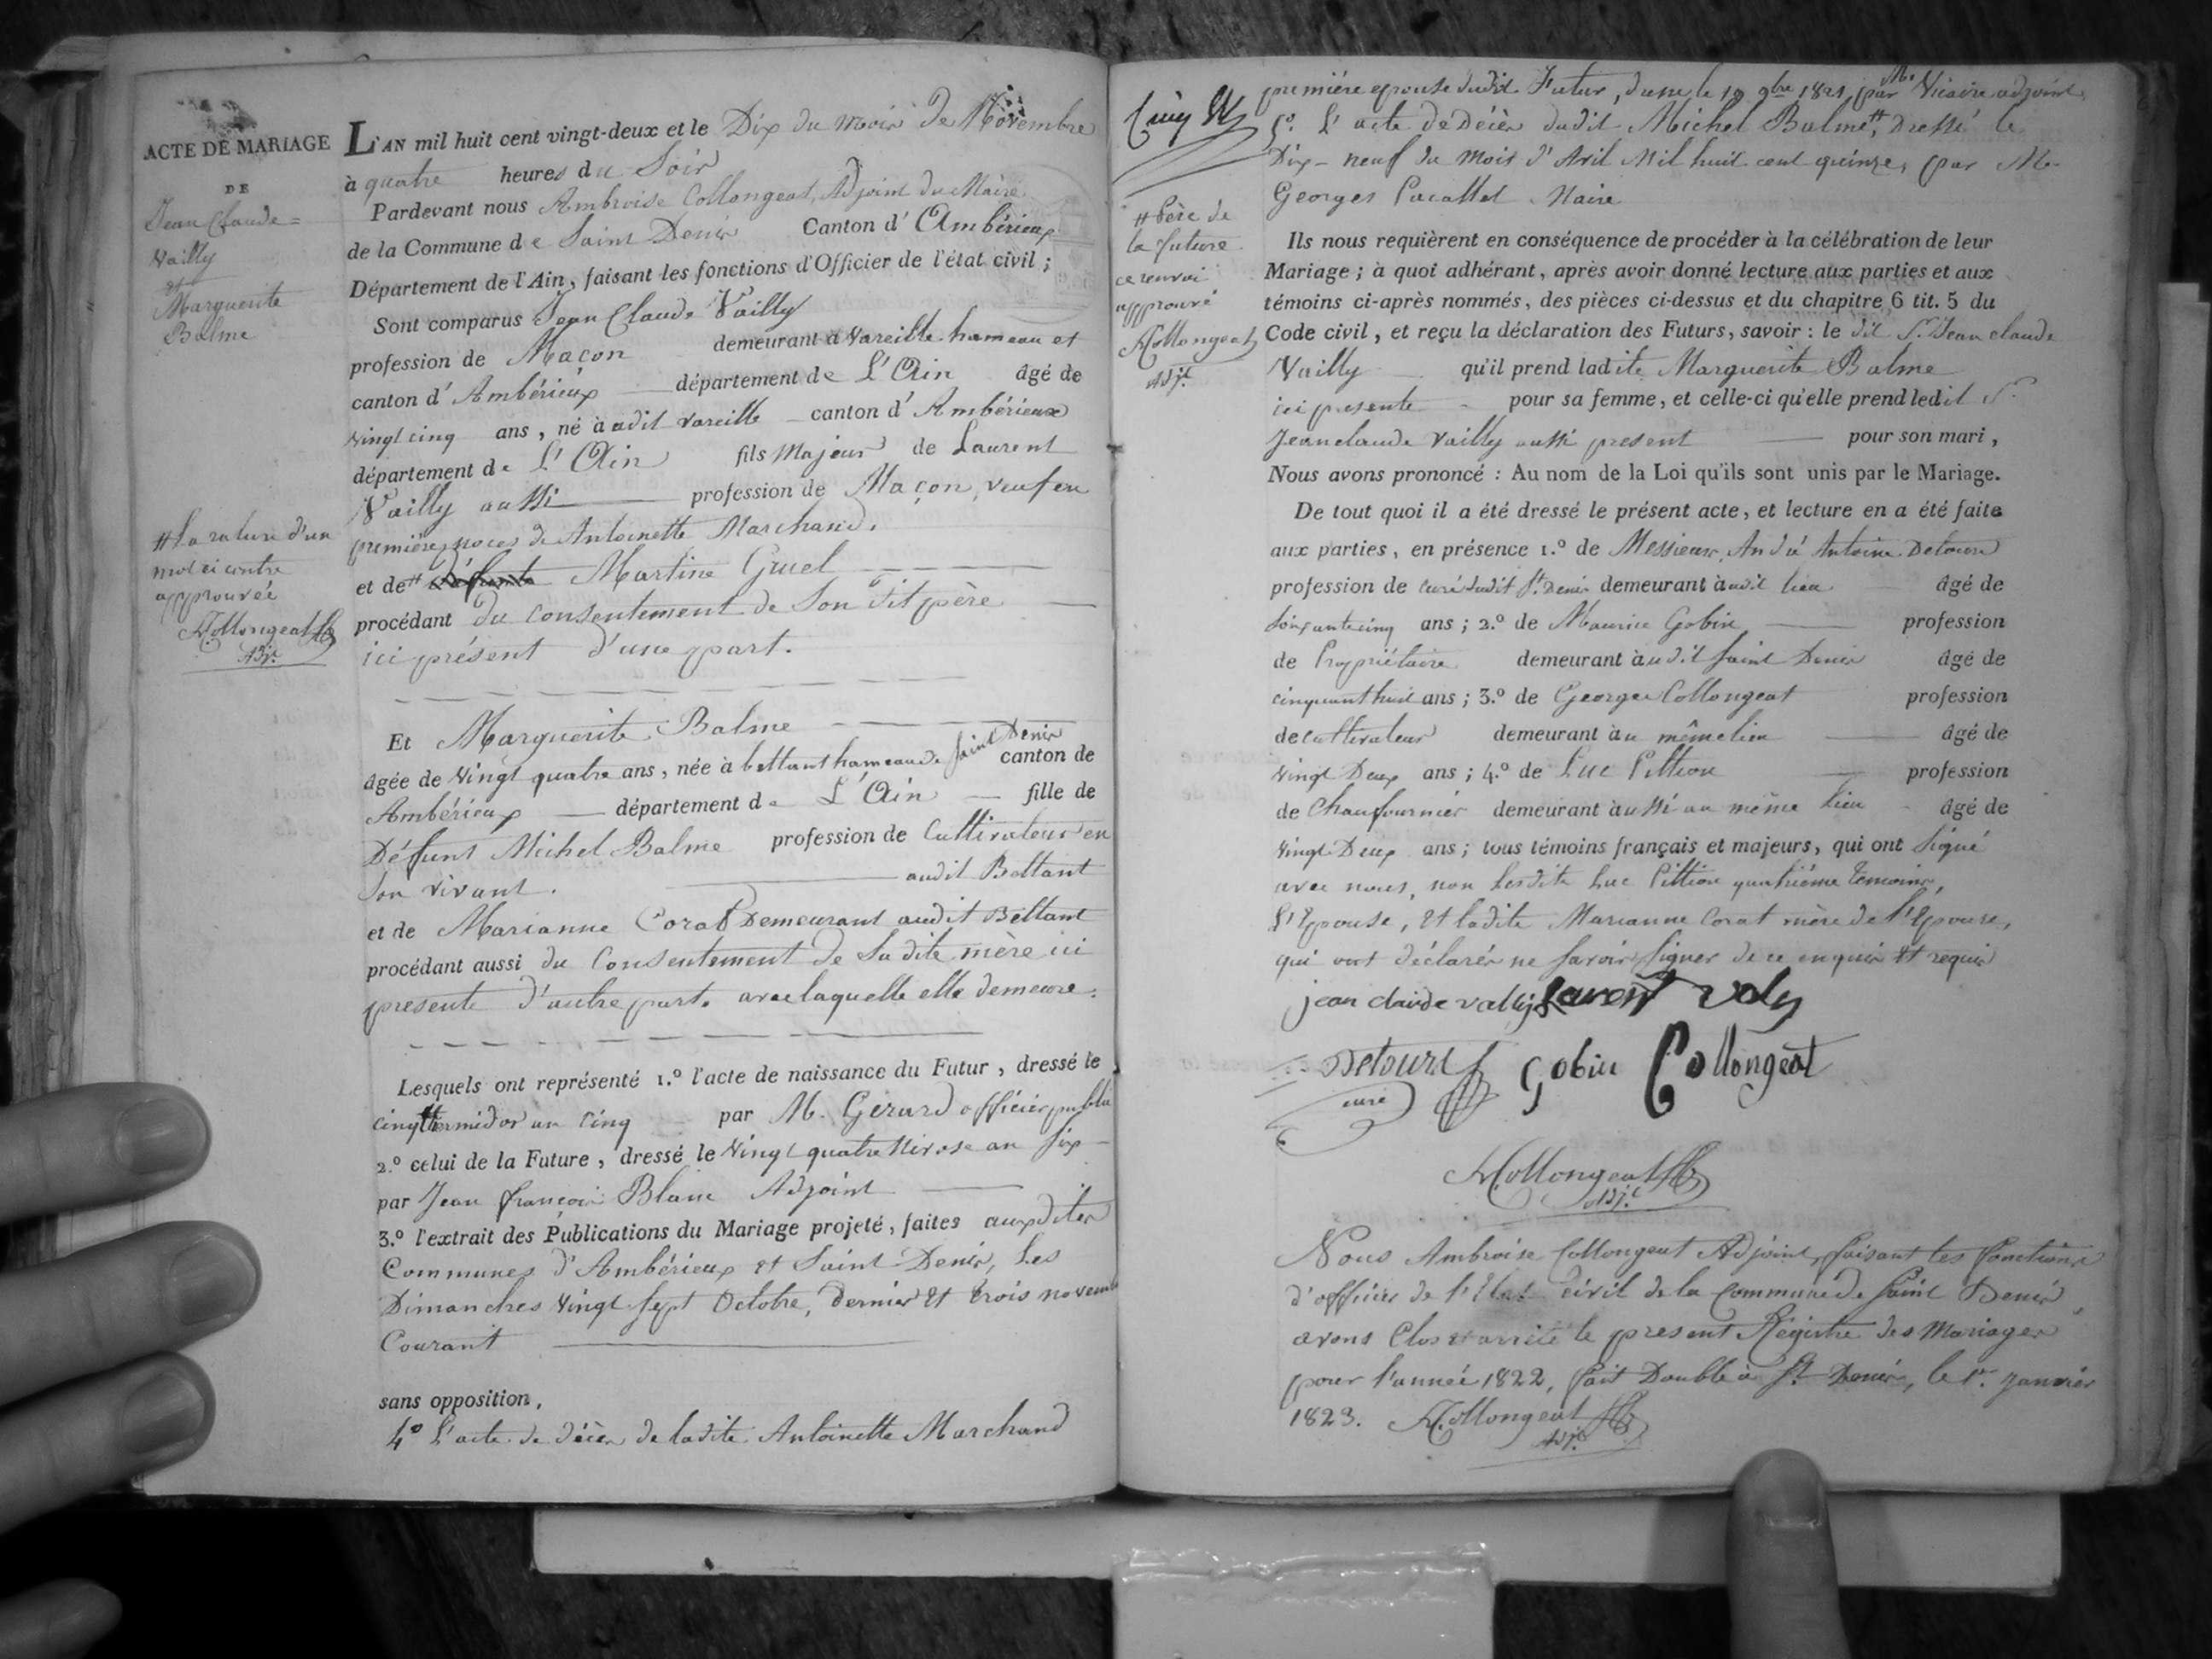 ACTE DE MARIAGE
DE
Jean Claude
Vailly
et
Marguerite
Balme
# la rature d'un
mot ci contre
approuvée
A. Collongeat
Adjt.
L'AN mil huit cent vingt-deux et le Dix du mois de Novembre
à quatre heures du Soir
Pardevant nous Ambroise Collongeat, Adjoint du Maire
de la Commune de Saint Denis Canton d'Ambérieux
Département de l'Ain, faisant les fonctions d'Officier de l'état civil ;
Sont comparus Jean Claude Vailly
profession de Maçon demeurant à Vareille hameau et
canton d'Ambérieux département de L'Ain âgé de
Vingt cinq ans, né à audit Vareille canton d'Ambérieux
département de L'Ain fils Majeur de Laurent
Vailly aussi profession de Maçon, veuf en
première noces de Antoinette Marchand.
et de # défunte Martine Gruel
procédant du consentement de Son dit père
ici présent d'une part.
Et Marguerite Balme
âgée de Vingt quatre ans, née à bettant hameau de Saint Denis canton de
Ambérieux département de L'Ain fille de
Défunt Michel Balme profession de Cultivateur en
Son vivant. audit Bettant
et de Marianne Corat Demeurant audit Bettant
procédant aussi du Consentement de Sa dite mère ici
presente d'autre part. avec laquelle elle demeure.
Lesquels ont représenté 1.º l'acte de naissance du Futur, dressé le
cinq thermidor an Cinq par M. Gerard officier public
2.º celui de la Future, dressé le Vingt quatre Nivose an Six
par Jean françois Blanc Adjoint
3.º l'extrait des Publications du Mariage projeté, faites auxdites
Communes d'Ambérieux et Saint Denis, Les
Dimanches Vingt Sept Octobre, dernier et trois novemb
Courant
sans opposition,
4º L'acte de décès de ladite Antoinette Marchand
# Père de
la future
ce renvoi
approuvé
A. Collongeat
Adjt.
première epouse dudit Futur, du le 19 9bre 1821, par Mr. Vicaire adjoint,
5º. L'acte de Décès dudit Michel Balme #, Dressé le
Dix-neuf du mois d'Avril Mil huit cent quinze, par Mr
Georges Maire
Ils nous requièrent en conséquence de procéder à la célébration de leur
Mariage ; à quoi adhérant, après avoir donné lecture aux parties et aux
témoins ci-après nommés, des pièces ci-dessus et du chapitre 6 tit. 5 du
Code civil, et reçu la déclaration des Futurs, savoir : le dit Sr. Jean claude
Vailly qu'il prend ladite Marguerite Balme
ici presente pour sa femme, et celle-ci qu'elle prend ledit Sr.
Jean claude Vailly aussi present pour son mari,
Nous avons prononcé : Au nom de la Loi qu'ils sont unis par le Mariage.
De tout quoi il a été dressé le présent acte, et lecture en a été faite
aux parties, en présence 1.º de Messieurs, André Antoine Detours
profession de curé dudit St. Denis demeurant à audit lieu âgé de
Soixante cinq ans ; 2.º de Maurice Gobin profession
de Propriétaire demeurant à audit Saint Denis âgé de
cinquant huit ans ; 3.º de George Collongeat profession
de cultivateur demeurant à u même lieu âgé de
Vingt Deux ans ; 4.º de Luc Pittion profession
de Chaufournier demeurant aussi au même lieu âgé de
Vingt Deux ans ; tous témoins français et majeurs, qui ont Signé
avec nous, non Lesdits Luc Pittion quatrième temoins,
L'Epouse, et ladite Marianne Corat mère de l'Epouse,
qui ont déclarés ne Savoir Signer de ce enquis et requis
jean claude vally Laurent valy
Detours Gobin Collongeat
curé
A. Collongeat
Adjt.
Nous Ambroise Collongeat Adjoint, faisant les fonctions
d'officier de l'Etat Civil de la Commune de Saint Denis
avons Clos et arrêté le present Régistre des Mariages
pour l'année 1822, fait Double à St. Denis, le 1er. janvier
1823. A. Collongeat
Adjt.